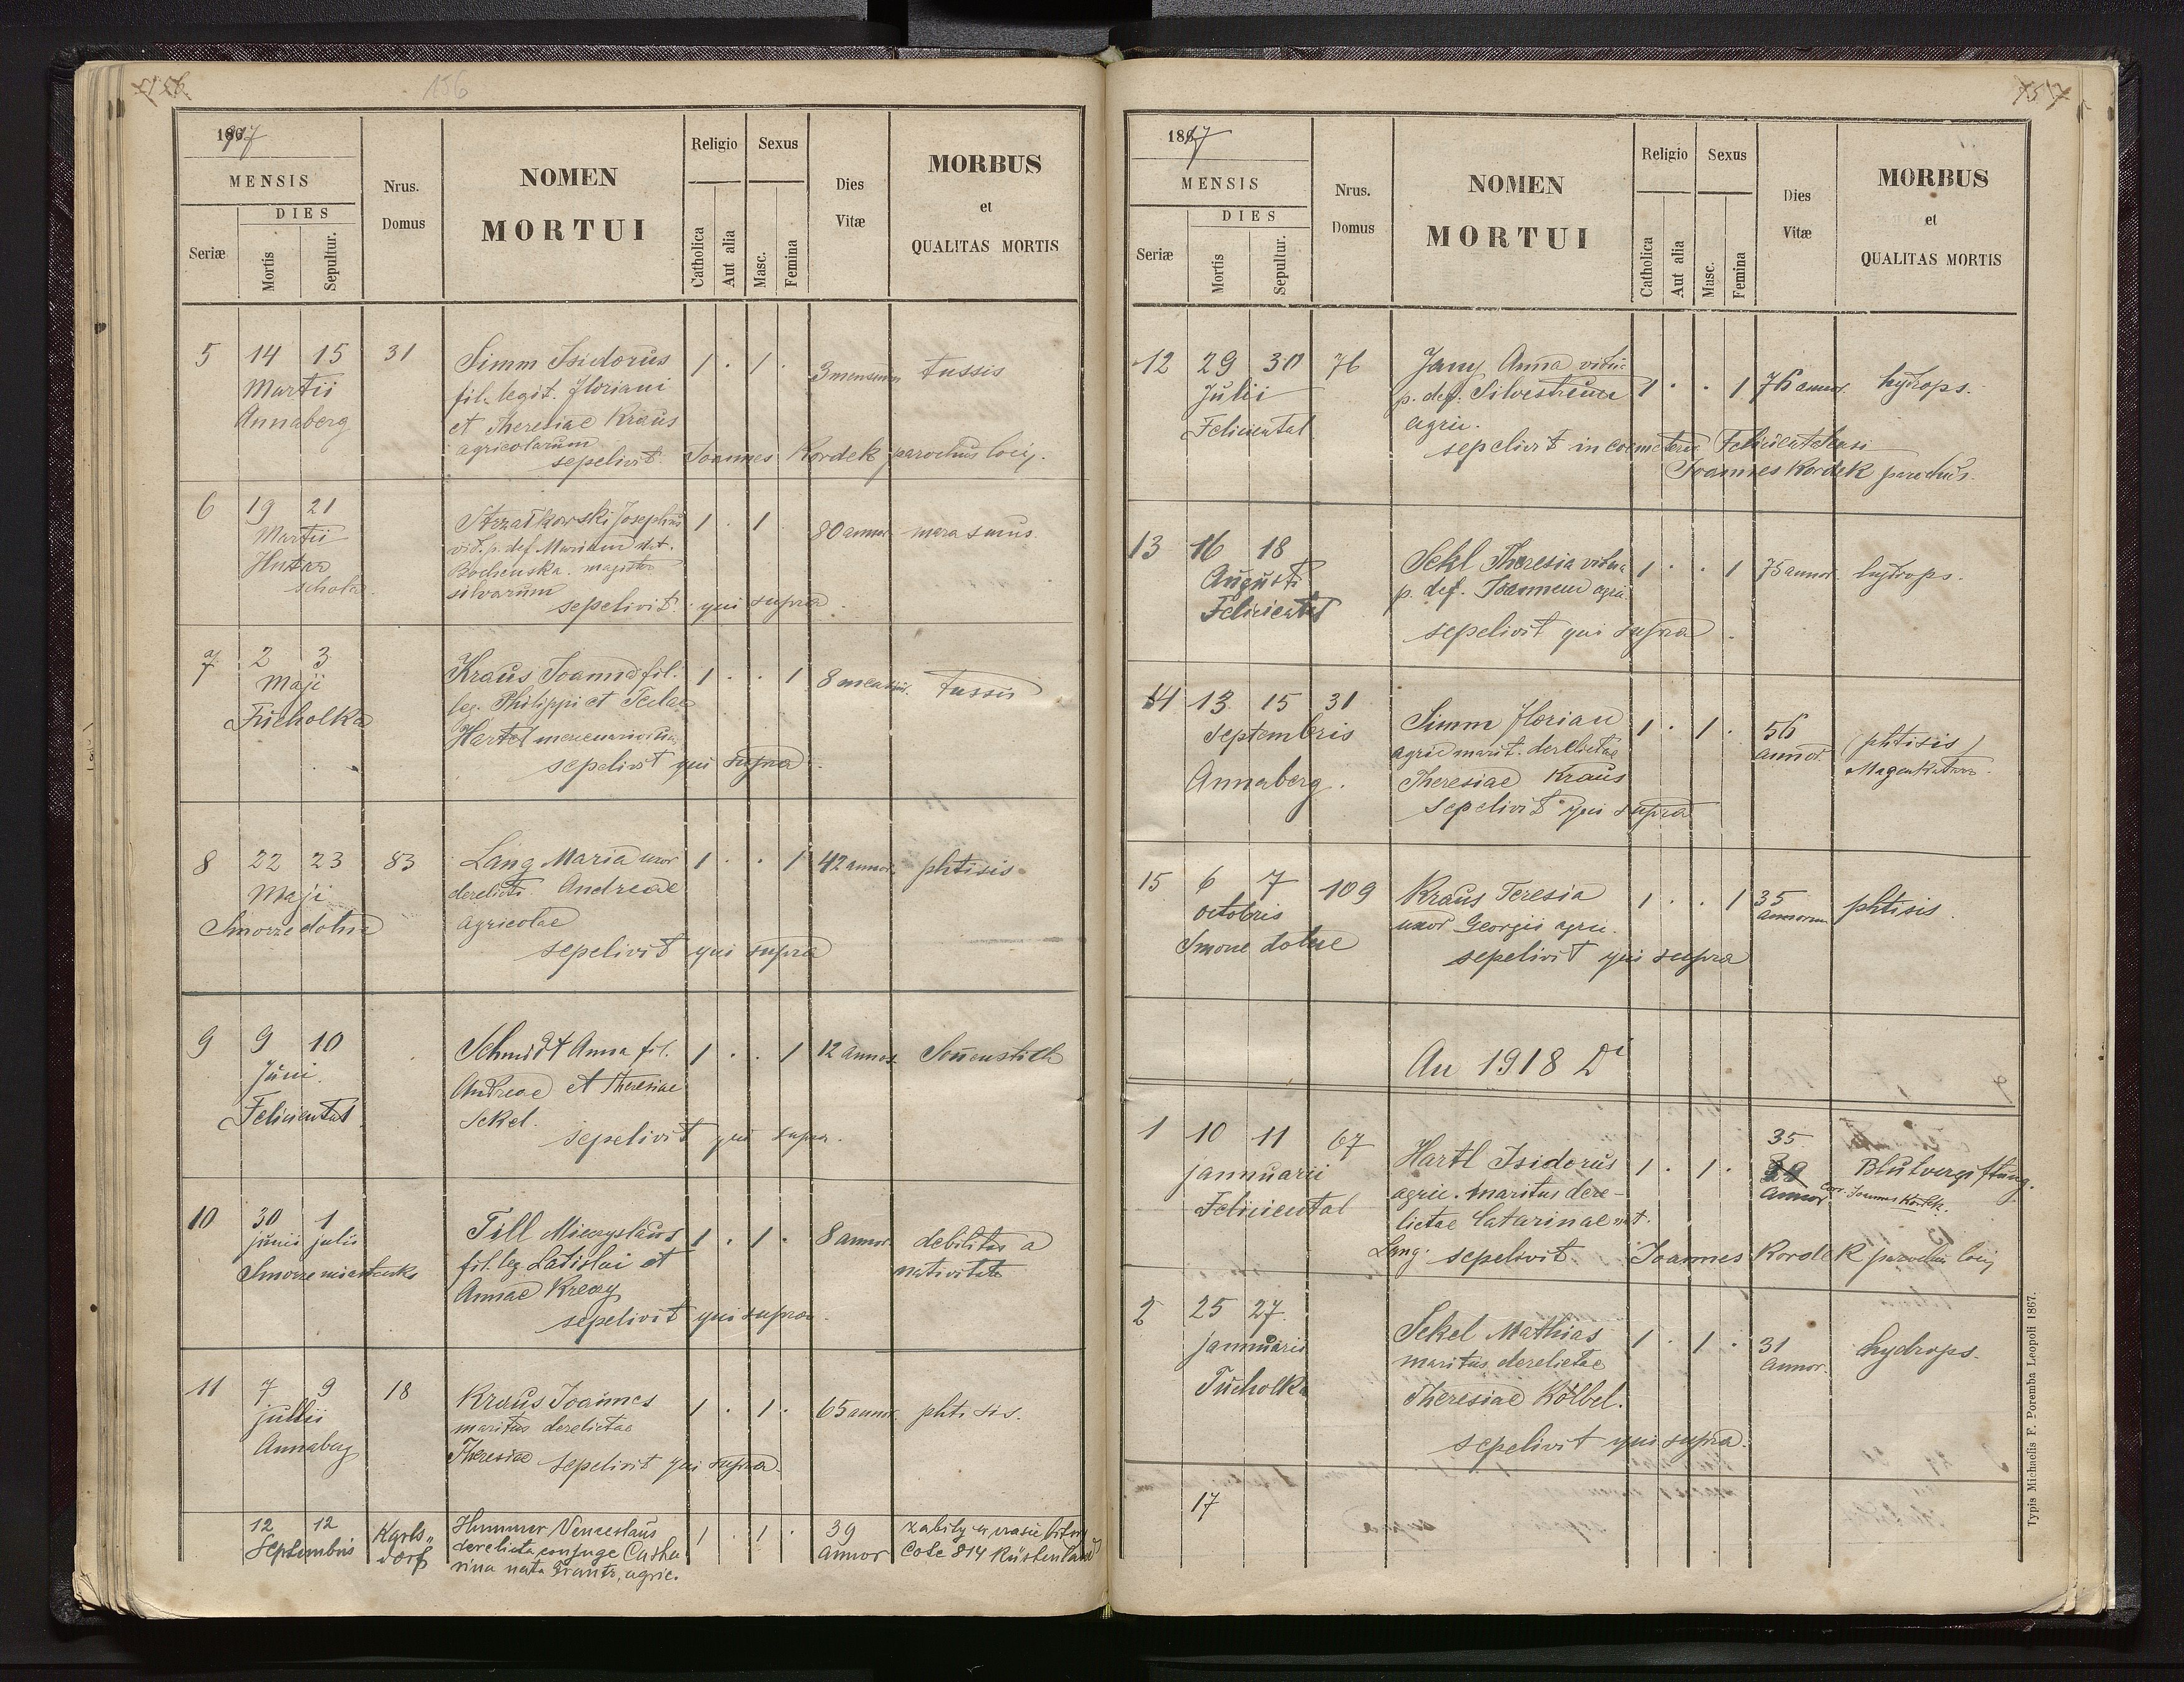 156
156
1867
MENSIS
DIES
Seriæ
Mortis
Sepultur.
Nrus.
Domus
NOMEN
MORTUI
Religio
Catholica
Aut alia
Sexus
Masc.
Femina
Dies
Vitæ
MORBUS
et
QUALITAS MORTIS
5 14 15 31 Simm Isidorus 1 . 1 . 3 mensium tussis
Martii fil. legit. Floriani
Annaberg et Theresiae Kraus
agricolarum
sepelivit Joannes Kordek parochus loci.
6 19 21 Strzałkowski Josephus 1 . 1 80 annor. marasmus
Martii vid. p. def. Mariam nat.
Hutar Bochenska. magister
schola. silvarum
sepelivit qui supra
7 2 3 Kraus Joanna fil. 1 . . 1 8 mensium. tussis
Maji leg. Philippi et Teclae
Tucholka Hartel mercenariorum
sepelivit qui supra
8 22 23 83 Lang Maria uxor 1 . . 1 42 annor. phtisis
Maji derelicti Andreae
Smorze dolna agricolae
sepelivit qui supra
9 9 10 Schmidt Anna fil. 1 . . 1 12 annor. Sonnenstich
Juni Andreae et Theresiae
Felicientat Sekel.
sepelivit qui supra.
10 30 1 Till Miecyslaus 1 . 1 . 8 annor. debilitas a
junii julii fil. leg. Ladislai et nativitate
Smorze miasteczko Annae
sepelivit qui supra.
11 7 9 18 Kraus Joannes 1 . 1 . 65 annor. phtisis.
jullii maritus derelictae
Annaberg Theresiae sepelivit qui supra.
12 12 Karls„ Hummer Venceslaus 1 . 1 . 39 zabity w czasie bitwy
Septembris dorf derelicta conjuge Catha annor Cote 814 Küstenland
rina nata Frantz, agric.
157
1867
MENSIS
DIES
Seriæ
Mortis
Sepultur.
Nrus.
Domus
NOMEN
MORTUI
Religio
Catholica
Aut alia
Sexus
Masc.
Femina
Dies
Vitæ
MORBUS
et
QUALITAS MORTIS
12 29 30 76 Jany Anna vidu: 1 . . 1 76 annor. hydrops.
Julii p. def. Silvestrum
Feliciental agric.
sepelivit in coemeterio
Joannes Kordek parochus.
13 16 18 Sekl Theresia vidua 1 . . 1 75 annor. hydrops.
Augusti p. def. Joannem agric.
Felicientat
sepelivit qui supra
14 13 15 31 Simm Florian 1 . 1 . 56 (phtisis)
Septembris agric. marit. derelictae annor. Magenkatarr.
Annaberg. Theresiae Kraus
sepelivit qui supra
15 6 7 109 Kraus Teresia 1 . . 1 35 phtisis.
octobris uxor Georgii agric. annorum
Smorze dolne
sepelivit qui supra
An 1918 Di
1 10 11 67 Hartl Isidorus 1 . 1 . 35 Blutvergiftung.
jannuarii agric. maritus dere- annor. corr. Joannes Kordek.
Feliciental lictae Catarinae nat.
Lang. sepelivit Joannes Kordek parochus loci
2 25 27 Sekel Mathias 1 . 1 . 31 hydrops.
jannuarii maritus derelictae annor.
Tucholka Theresiae Kölbel.
sepelivit qui supra.
17
Typis Michaelis F. Poremba Leopoli 1867.